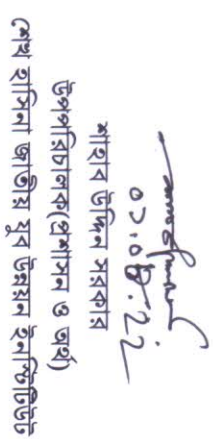 শাহাব উদ্দিন সরকার
উপপরিচালক(প্রশাসন ও অর্থ)
শেখ হাসিনা জাতীয় যুব উন্নয়ন ইনস্টিটিউট